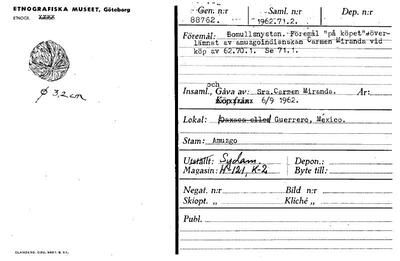 ETNOGRAFISKA MUSEET, Göteborg
ETNOGR.
ø 3,2 cm
Gen. n:r Saml. n:r Dep. n:r
88762. 1962.71.2.
Föremål: Bomullsnystan. Föremål "på köpet" över-
lämnat av amuzgoindianskan Carmen Miranda vid
köp av 62.70.1. Se 71.1.
och
Insaml., Gåva av: Sra. Carmen Miranda. År:
Köp från: 6/9 1962.
Lokal: Oaxaca eller Guerrero, México.
Stam: Amuzgo
Utställt: Sydam. Depon.:
Magasin: H 121, K-2 Byte till:
Negat. n:r Bild n:r
Skiopt. n:r Kliché n:r
Publ.